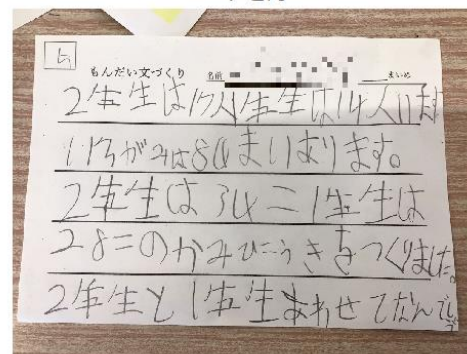 もんだい文づくり 名前 まいめ
2年生は17人1年生は14人います
いろがみは84まいあります。
2年生は34こ1年生は
28このかみひこうきをつくりました。
2年生と1年生あわせてなんで